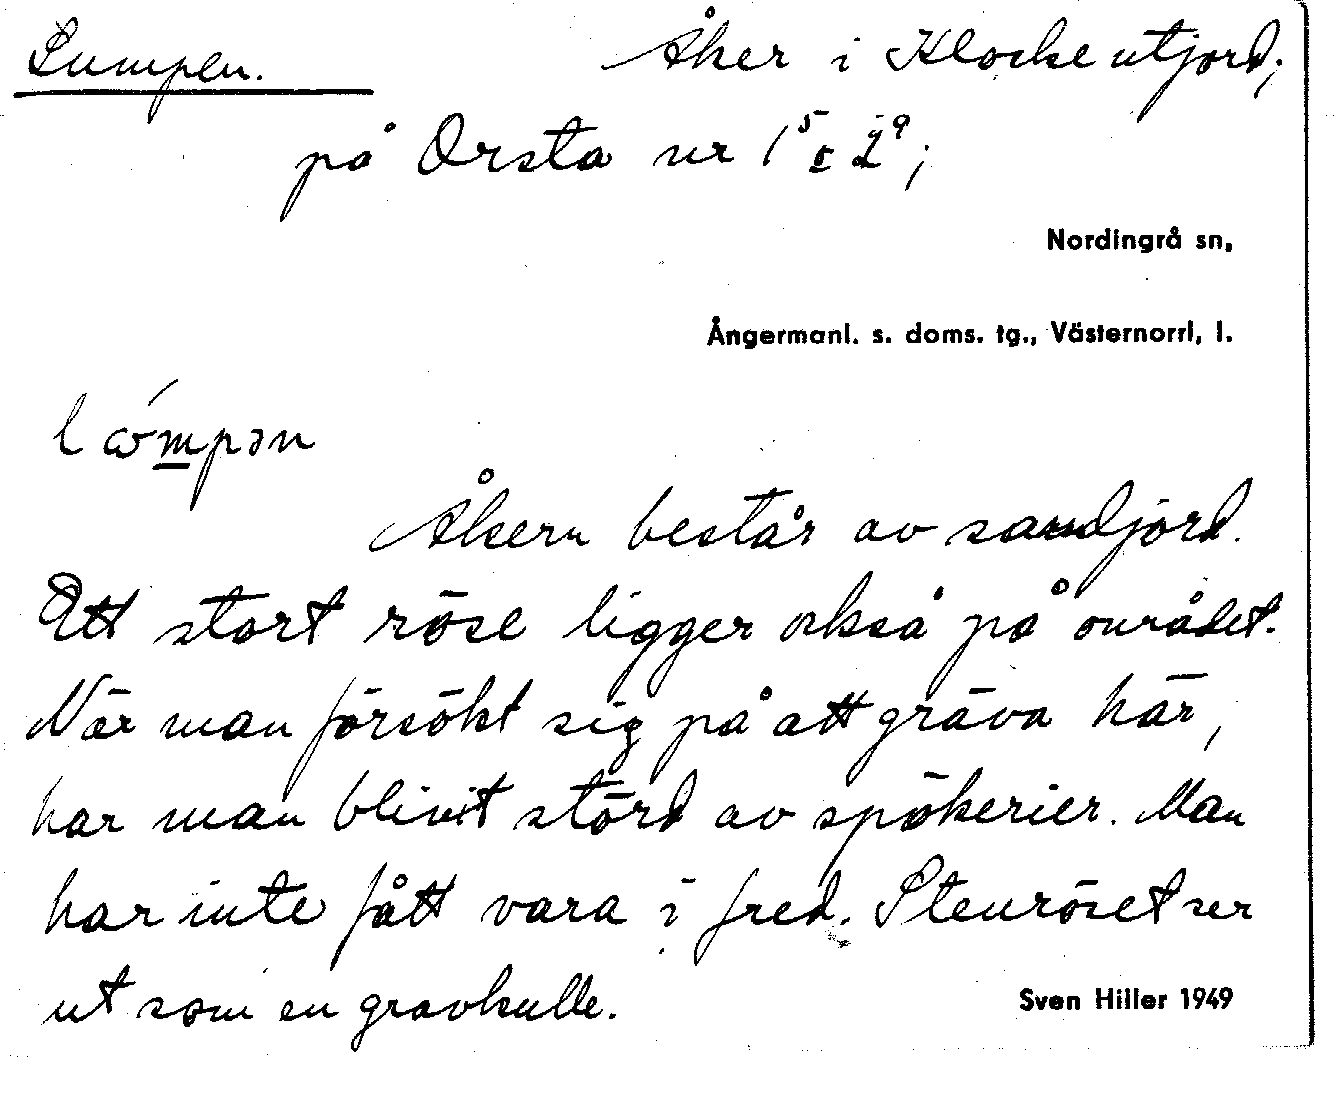 Sumpen. Åker i Klocke utjord;
på Orsta nr 1⁵ & 2⁹;
Nordingrå sn,
Ångermanl. s. doms. tg., Västernorrl, l.
Åkern består av sandjord.
Ett stort röse ligger också på området.
När man försökt sig på att gräva här,
har man blivit störd av spökerier. Man
har inte fått vara i fred. Stenröset ser
ut som en gravkulle.
Sven Hiller 1949